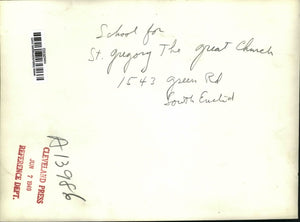 School for
St. Gregory The great Church
1543 Green Rd
South Euclid
A13986
CLEVELAND PRESS
JUN 7 1949
REFERENCE DEPT.